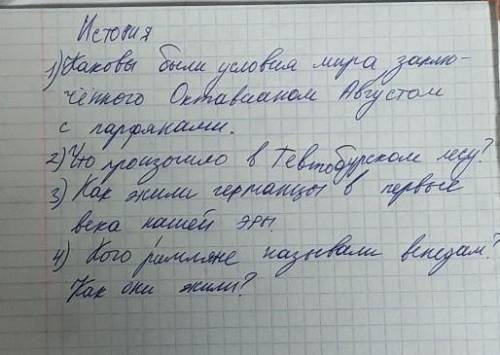 История
1) Каковы были условия мира заклю-
ченного Октавианом Августом
с парфянами.
2) Что произошло в Тевтобургском лесу?
3) Как жили германцы в первые
века нашей эры.
4) Кого римляне называли венедам?
Как они жили?